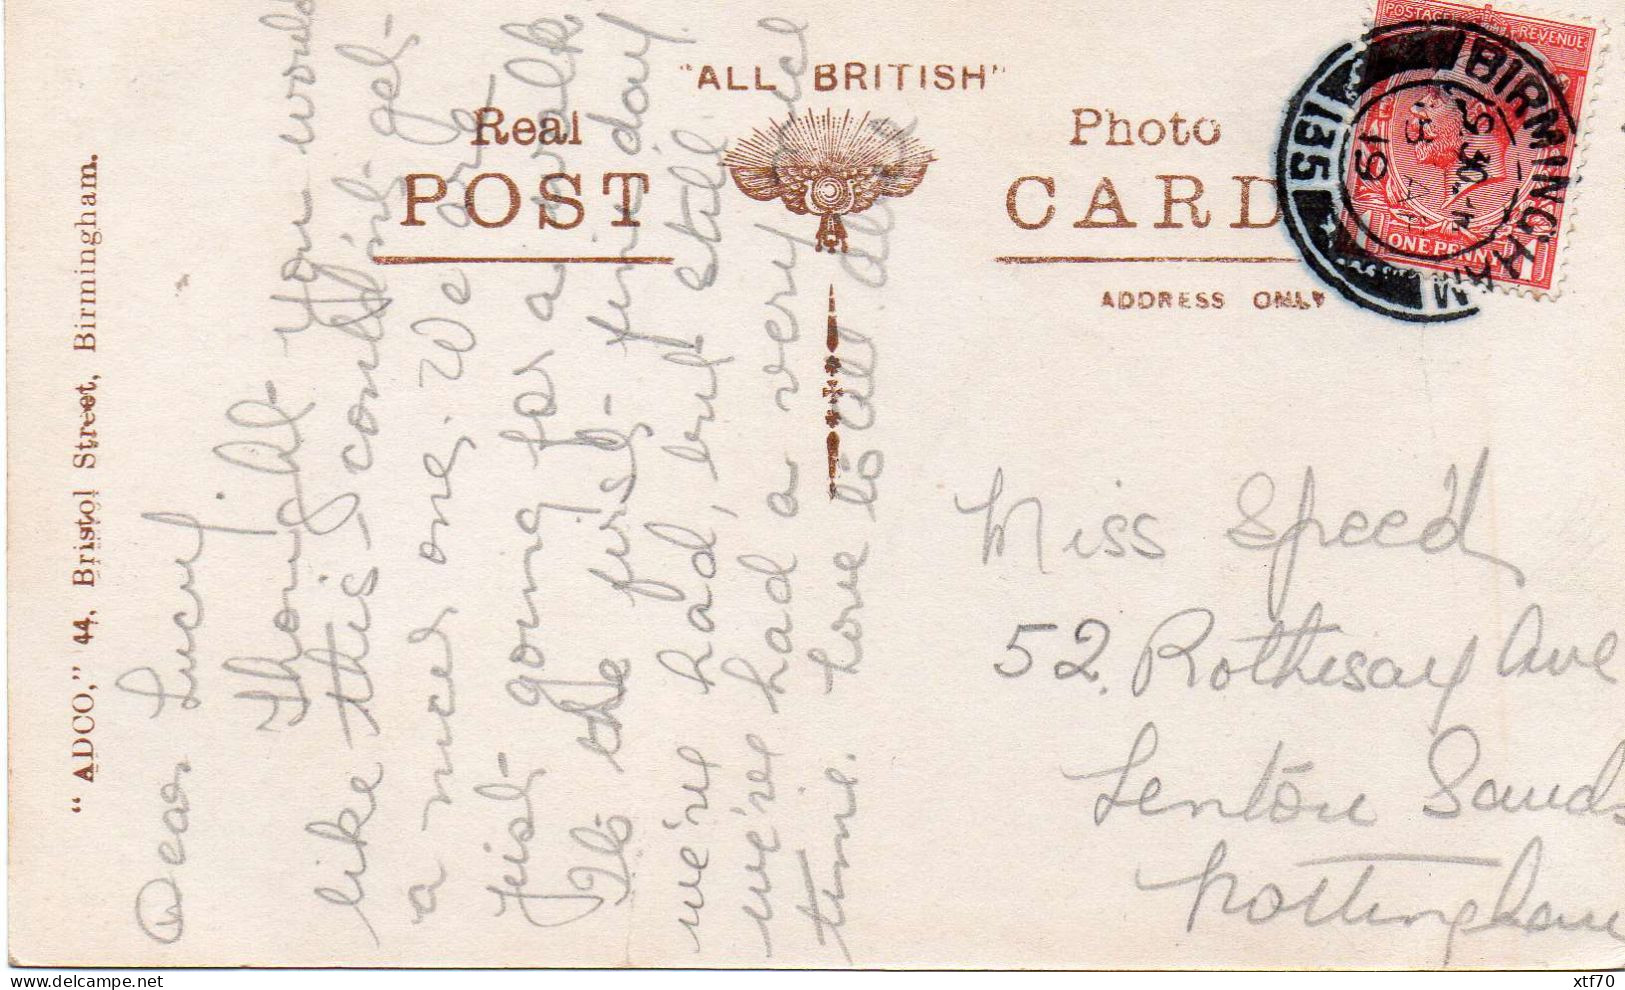 "ALL BRITISH"
Real Photo
POST CARD
ADDRESS ONLY
"ADCO," 44, Bristol Street, Birmingham.
BIRMINGHAM
135
19
POSTAGE REVENUE
ONE PENNY
Dear Lucy,
Thought you would
like this – couldn't get
a nicer one. We are
just going for a walk.
It's the first fine day
we've had, but still
we've had a very nice
time. Love to all
Miss Speed
52 Rothesay Ave
Lenton Sands
Nottingham
xtf70